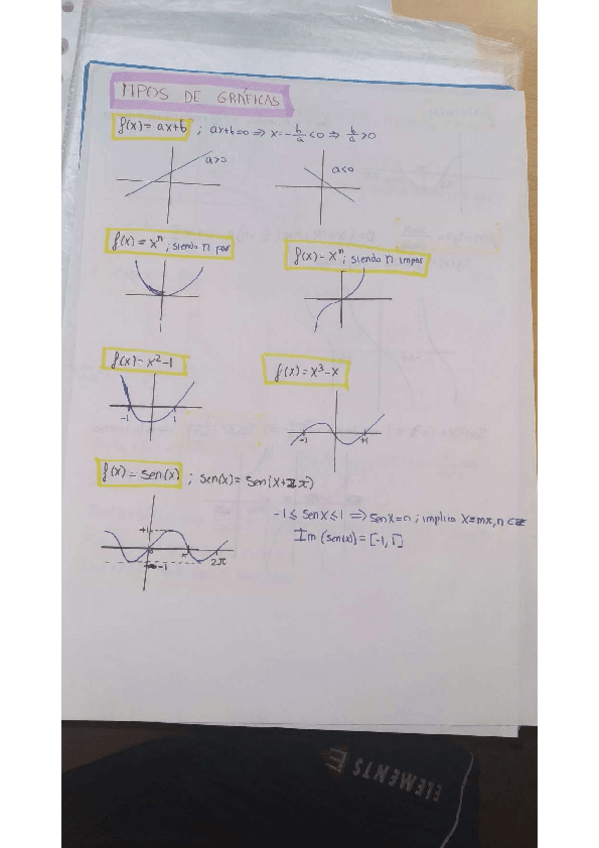 TIPOS DE GRÁFICAS
f(x)= ax+b ; ax+b=0 ⇒ x=-b/a <0 ⇒ b/a >0
a>0
a<0
f(x)= xⁿ; siendo n par
f(x)- xⁿ; siendo n impar
f(x)-x²-1
f(x)=x³-x
-1 1
-1 +1
f(x)=sen(x) ; sen(x)= sen(x+2π)
-1 ≤ senx ≤ 1 ⇒ senx=0 ; implica x=mπ, n ∈ Z
Im (sen(x))=[-1,1]
+1
0 π 2π
-1
ELEMENTS